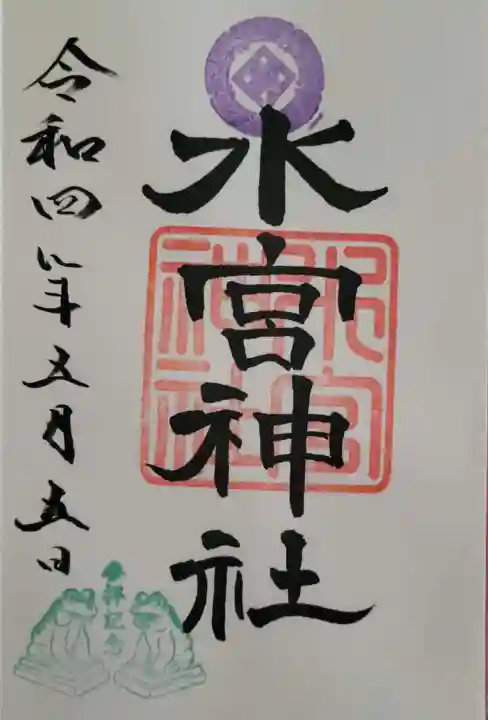 水宮神社
令和四年五月五日
参拝記念
水宮
神社